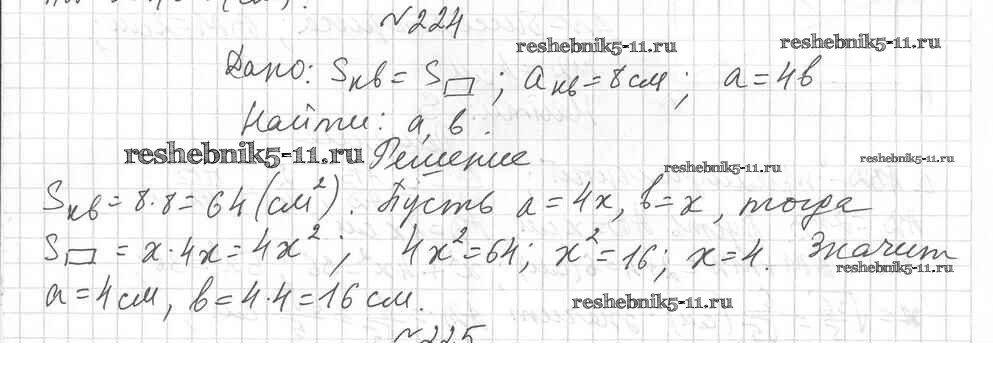 №224
reshebnik5-11.ru reshebnik5-11.ru
Дано: Sкв = S▭; aкв = 8 см; a = 4в
Найти: a, в.
reshebnik5-11.ru Решение
reshebnik5-11.ru reshebnik5-11.ru
Sкв = 8·8 = 64 (см²). Пусть a = 4x, в = x, тогда
S▭ = x·4x = 4x²; 4x² = 64; x² = 16; x = 4. Значит
reshebnik5-11.ru
a = 4 см, в = 4·4 = 16 см.
reshebnik5-11.ru
№225